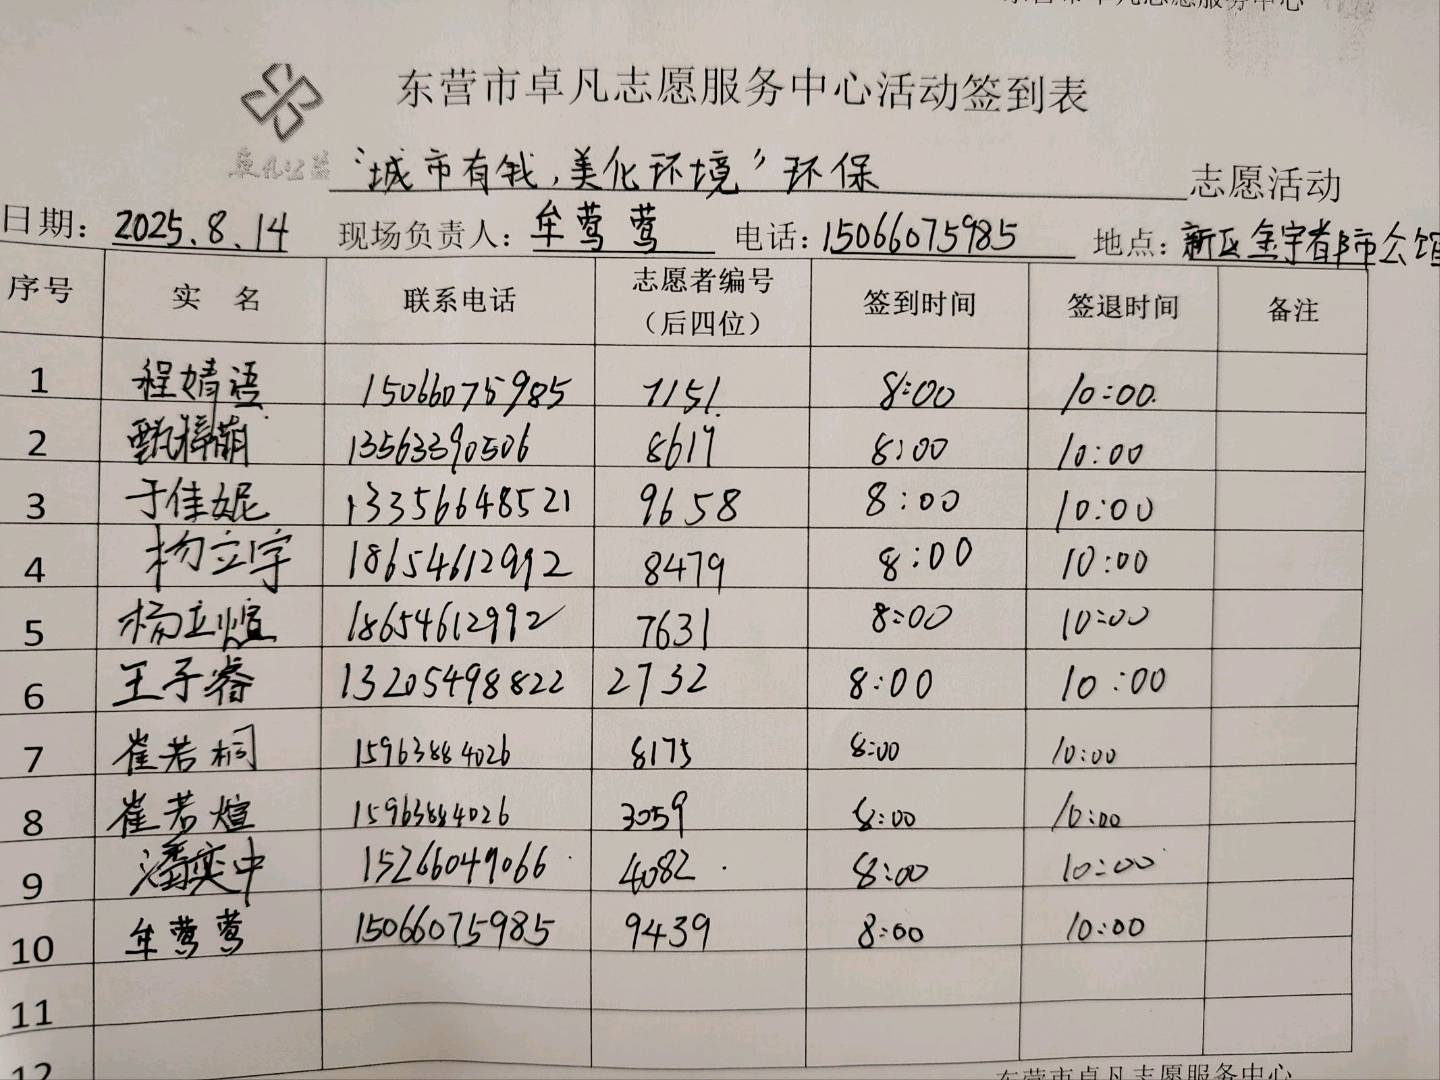 东营市卓凡志愿服务中心
东营市卓凡志愿服务中心活动签到表
卓凡公益
“城市有我,美化环境”环保 志愿活动
日期: 2025.8.14 现场负责人: 牟莺莺 电话: 15066075985 地点: 新区金宇都市公馆
序号 实 名 联系电话 志愿者编号(后四位) 签到时间 签退时间 备注
1 程婧语 15066075985 7151 8:00 10:00
2 甄梓萌 13563390506 8617 8:00 10:00
3 于佳妮 13356648521 9658 8:00 10:00
4 杨立宇 18654612992 8479 8:00 10:00
5 杨立煊 18654612992 7631 8:00 10:00
6 王子睿 13205498822 2732 8:00 10:00
7 崔若桐 15963884026 8175 8:00 10:00
8 崔若煊 15963884026 3059 8:00 10:00
9 潘奕中 15266049066 4082 8:00 10:00
10 牟莺莺 15066075985 9439 8:00 10:00
11
12
东营市卓凡志愿服务中心